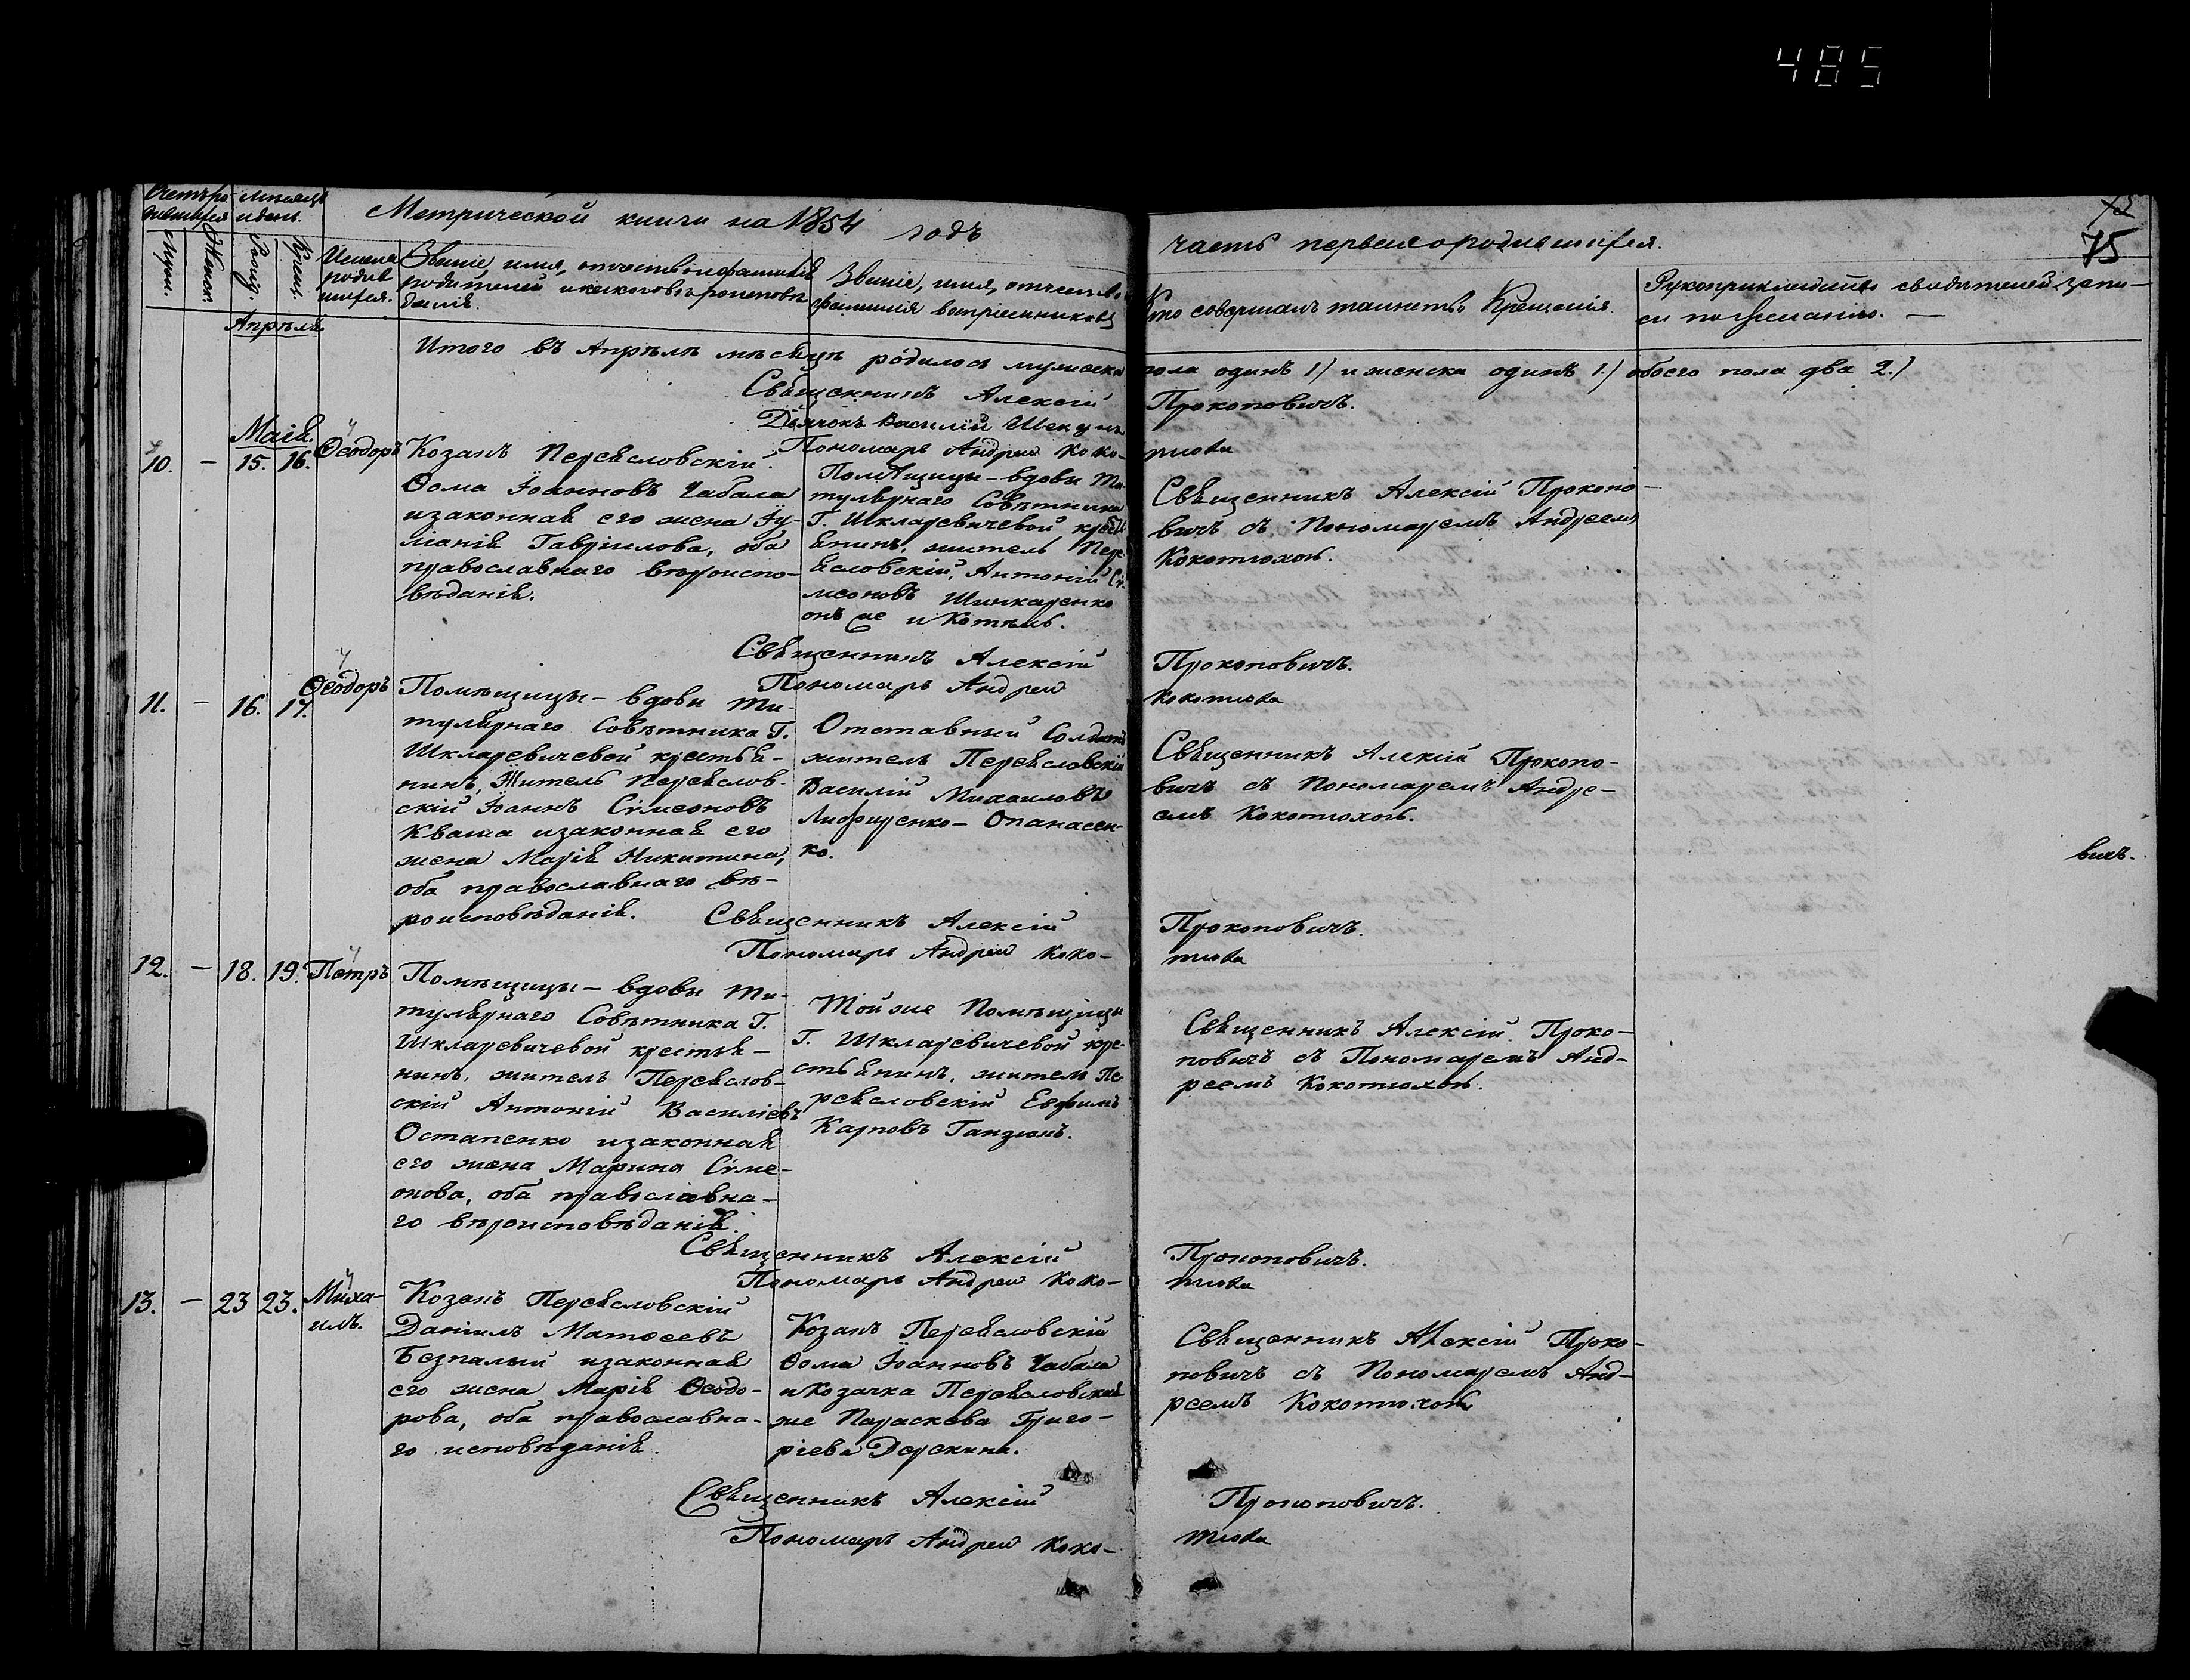 485
75
Метрической книги на 1854 годъ
часть первая о родившихся.
Счетъ ро-
дившихся
мѣсяцъ
и день.
Муж.
Женск.
Рожд.
Крещ.
Имена
родив
шихся.
Званіе, имя, отчество и фамилія
родителей и какого вѣроисповѣ
данія.
Званіе, имя, отчество
фамилія воспріемниковъ
Кто совершалъ таинство Крещенія.
Рукоприкладство свидѣтелей запи-
си по желанію.
Апрѣля
Итого въ Апрѣлѣ мѣсяцѣ родилось мужеска пола одинъ 1) и женска одинъ 1.) обоего пола два 2.)
Священникъ Алексій Прокоповичъ.
Дьячокъ Василій
Пономарь Андрей Коко-тюха
Маія.
10. - 15. 16. Ѳеодоръ
Козакъ Переясловскій
Ѳома Іоанновъ Чабала
и законная его жена Іу-
ліанія Гавріилова, оба
православнаго вѣроиспо-
вѣданія.
Помѣщицы - вдовы Ти-
тулярнаго Совѣтника
Г. Шкляревичевой кресть-
янинъ, житель Пере-
ясловскій, Антоній Сѵ-
меоновъ Шинкаренко
онъ же и Котъ
Священникъ Алексій Прокопо-
вичъ съ Пономаремъ Андреемъ
Кокотюхою.
Священникъ Алексій Прокоповичъ.
Пономарь Андрей Кокотюха
11. - 16. 17. Ѳеодоръ
Помѣщицы - вдовы Ти-
тулярнаго Совѣтника Г.
Шкляревичевой крестья-
нинъ, Житель Переяслов-
скій Іоаннъ Сѵмеоновъ
Кваша и законная его
жена Марія Никитина,
оба православнаго вѣ-
роисповѣданія.
Отставный Солдатъ
житель Переясловскій
Василій Михаиловъ
Опанасен-
ко.
Священникъ Алексій Прокопо-
вичъ съ Пономаремъ Андре-
емъ Кокотюхою.
вичъ.
Священникъ Алексій Прокоповичъ.
Пономарь Андрей Коко-тюха
12. - 18. 19. Петръ
Помѣщицы - вдовы Ти-
тулярнаго Совѣтника Г.
Шкляревичевой крестья-
нинъ, житель Переяслов-
скій Антоній Василіевъ
Остапенко и законная
его жена Марина Сѵме-
онова, оба православна-
го вѣроисповѣданія.
Той же Помѣщицы
Г. Шкляревичевой кре-
стьянинъ, житель Пе-
реясловскій Евфимъ
Карповъ Гандюкъ.
Священникъ Алексій Проко-
повичъ съ Пономаремъ Анд-
реемъ Кокотюхою.
Священникъ Алексій Прокоповичъ.
Пономарь Андрей Коко-тюха
13. - 23 23. Миха-
илъ.
Козакъ Переясловскій
Даніилъ Матѳеевъ
Безпалый и законная
его жена Марія Ѳеодо-
рова, оба православна-
го исповѣданія.
Козакъ Переясловскій
Ѳома Іоанновъ Чабала
и Козачка Переясловская
же Параскева Григо-
ріева
Священникъ Алексій Проко-
повичъ съ Пономаремъ Анд-
реемъ Кокотюхою
Священникъ Алексій Прокоповичъ.
Пономарь Андрей Коко-тюха